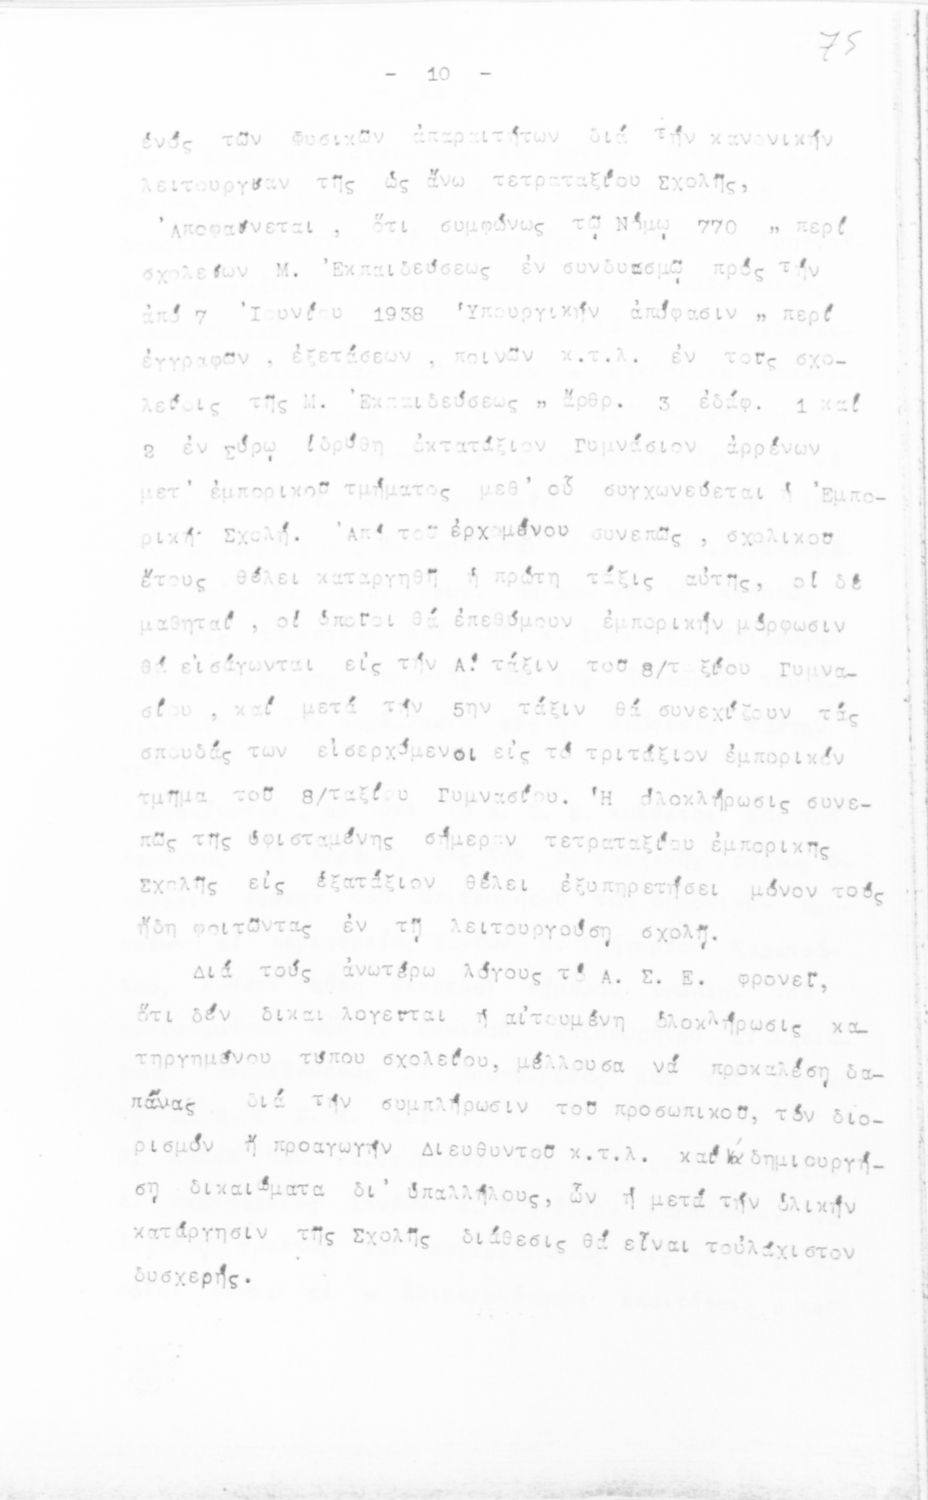 75
- 10 -
ἑνός τῶν Φυσικῶν ἀπαραιτήτων διά τήν κανονικήν
λειτουργίαν τῆς ὡς ἄνω τετραταξίου Σχολῆς,
Ἀποφαίνεται , ὅτι συμφώνως τῷ Νόμῳ 770 „ περί
σχολείων Μ. Ἐκπαιδεύσεως ἐν συνδυασμῷ πρός τήν
ἀπό 7 Ἰουνίου 1938 Ὑπουργικήν ἀπόφασιν „ περί
ἐγγραφῶν , ἐξετάσεων , ποινῶν κ.τ.λ. ἐν τοῖς σχο-
λείοις τῆς Μ. Ἐκπαιδεύσεως „ ἄρθρ. 3 ἐδάφ. 1 καί
2 ἐν Σύρῳ ἱδρύθη ὀκτατάξιον Γυμνάσιον ἀρρένων
μετ' ἐμπορικοῦ τμήματος μεθ' οὗ συγχωνεύεται ἡ Ἐμπο-
ρική Σχολή. Ἀπό τοῦ ἐρχομένου συνεπῶς , σχολικοῦ
ἔτους θέλει καταργηθῆ ἡ πρώτη τάξις αὐτῆς, οἱ δέ
μαθηταί , οἱ ὁποῖοι θά ἐπεθύμουν ἐμπορικήν μόρφωσιν
θά εἰσάγωνται εἰς τήν Α! τάξιν τοῦ 8/τ ξίου Γυμνα-
σίου , καί μετά τήν 5ην τάξιν θά συνεχίζουν τάς
σπουδάς των εἰσερχόμενοι εἰς τό τριτάξιον ἐμπορικόν
τμῆμα τοῦ 8/ταξίου Γυμνασίου. Ἡ ὁλοκλήρωσις συνε-
πῶς τῆς ὑφισταμένης σήμερον τετραταξίου ἐμπορικῆς
Σχολῆς εἰς ἑξατάξιον θέλει ἐξυπηρετήσει μόνον τούς
ἤδη φοιτῶντας ἐν τῇ λειτουργούσῃ σχολῇ.
Διά τούς ἀνωτέρω λόγους τό Α. Σ. Ε. φρονεῖ,
ὅτι δέν δικαιλογεῖται ἡ αἰτουμένη ὁλοκλήρωσις κα-
τηργημένου τύπου σχολείου, μέλλουσα νά προκαλέσῃ δα-
πάνας διά τήν συμπλήρωσιν τοῦ προσωπικοῦ, τόν διο-
ρισμόν ἤ προαγωγήν Διευθυντοῦ κ.τ.λ. καί νά δημιουργή-
σῃ δικαιώματα δι' ὑπαλλήλους, ὧν ἡ μετά τήν ὁλικήν
κατάργησιν τῆς Σχολῆς διάθεσις θά εἶναι τοὐλάχιστον
δυσχερής.